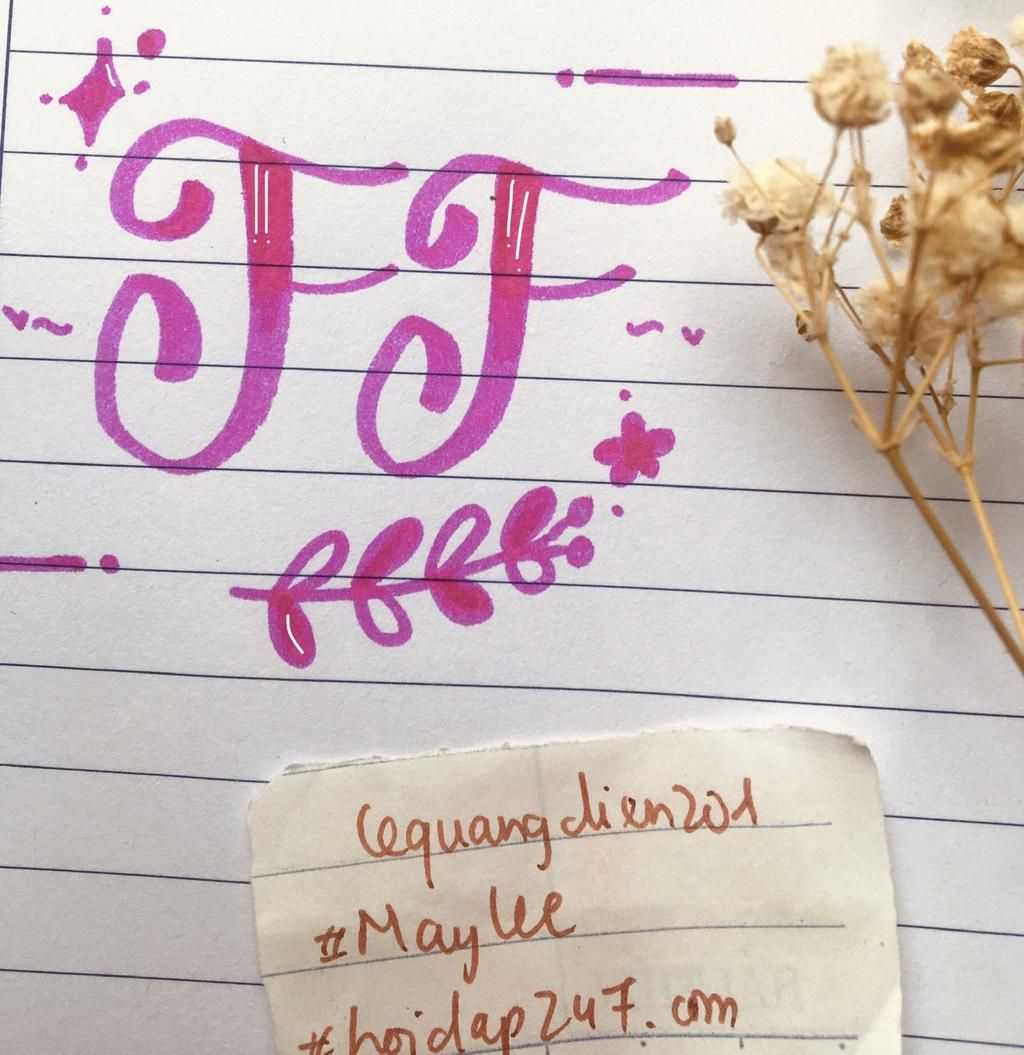 FF
lequangdien201
#MayLee
#hoidap247.com